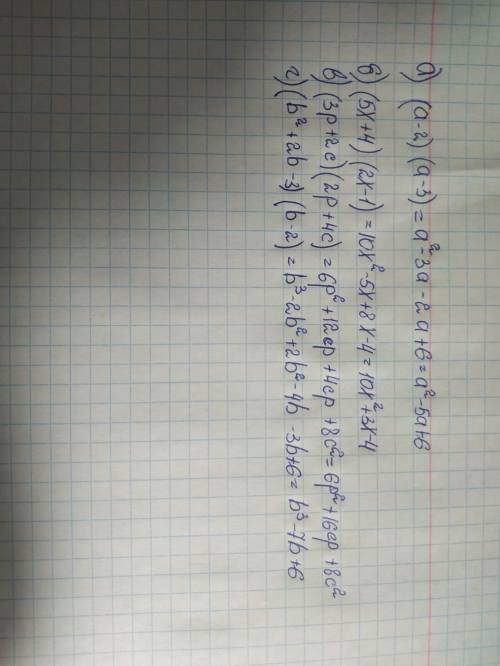 а) (a-2)(a-3)=a²-3a-2a+6=a²-5a+6
б) (5x+4)(2x-1)=10x²-5x+8x-4=10x²+3x-4
в) (3p+2c)(2p+4c)=6p²+12cp+4cp+8c²=6p²+16cp+8c²
г) (b²+2b-3)(b-2)=b³-2b²+2b²-4b-3b+6=b³-7b+6